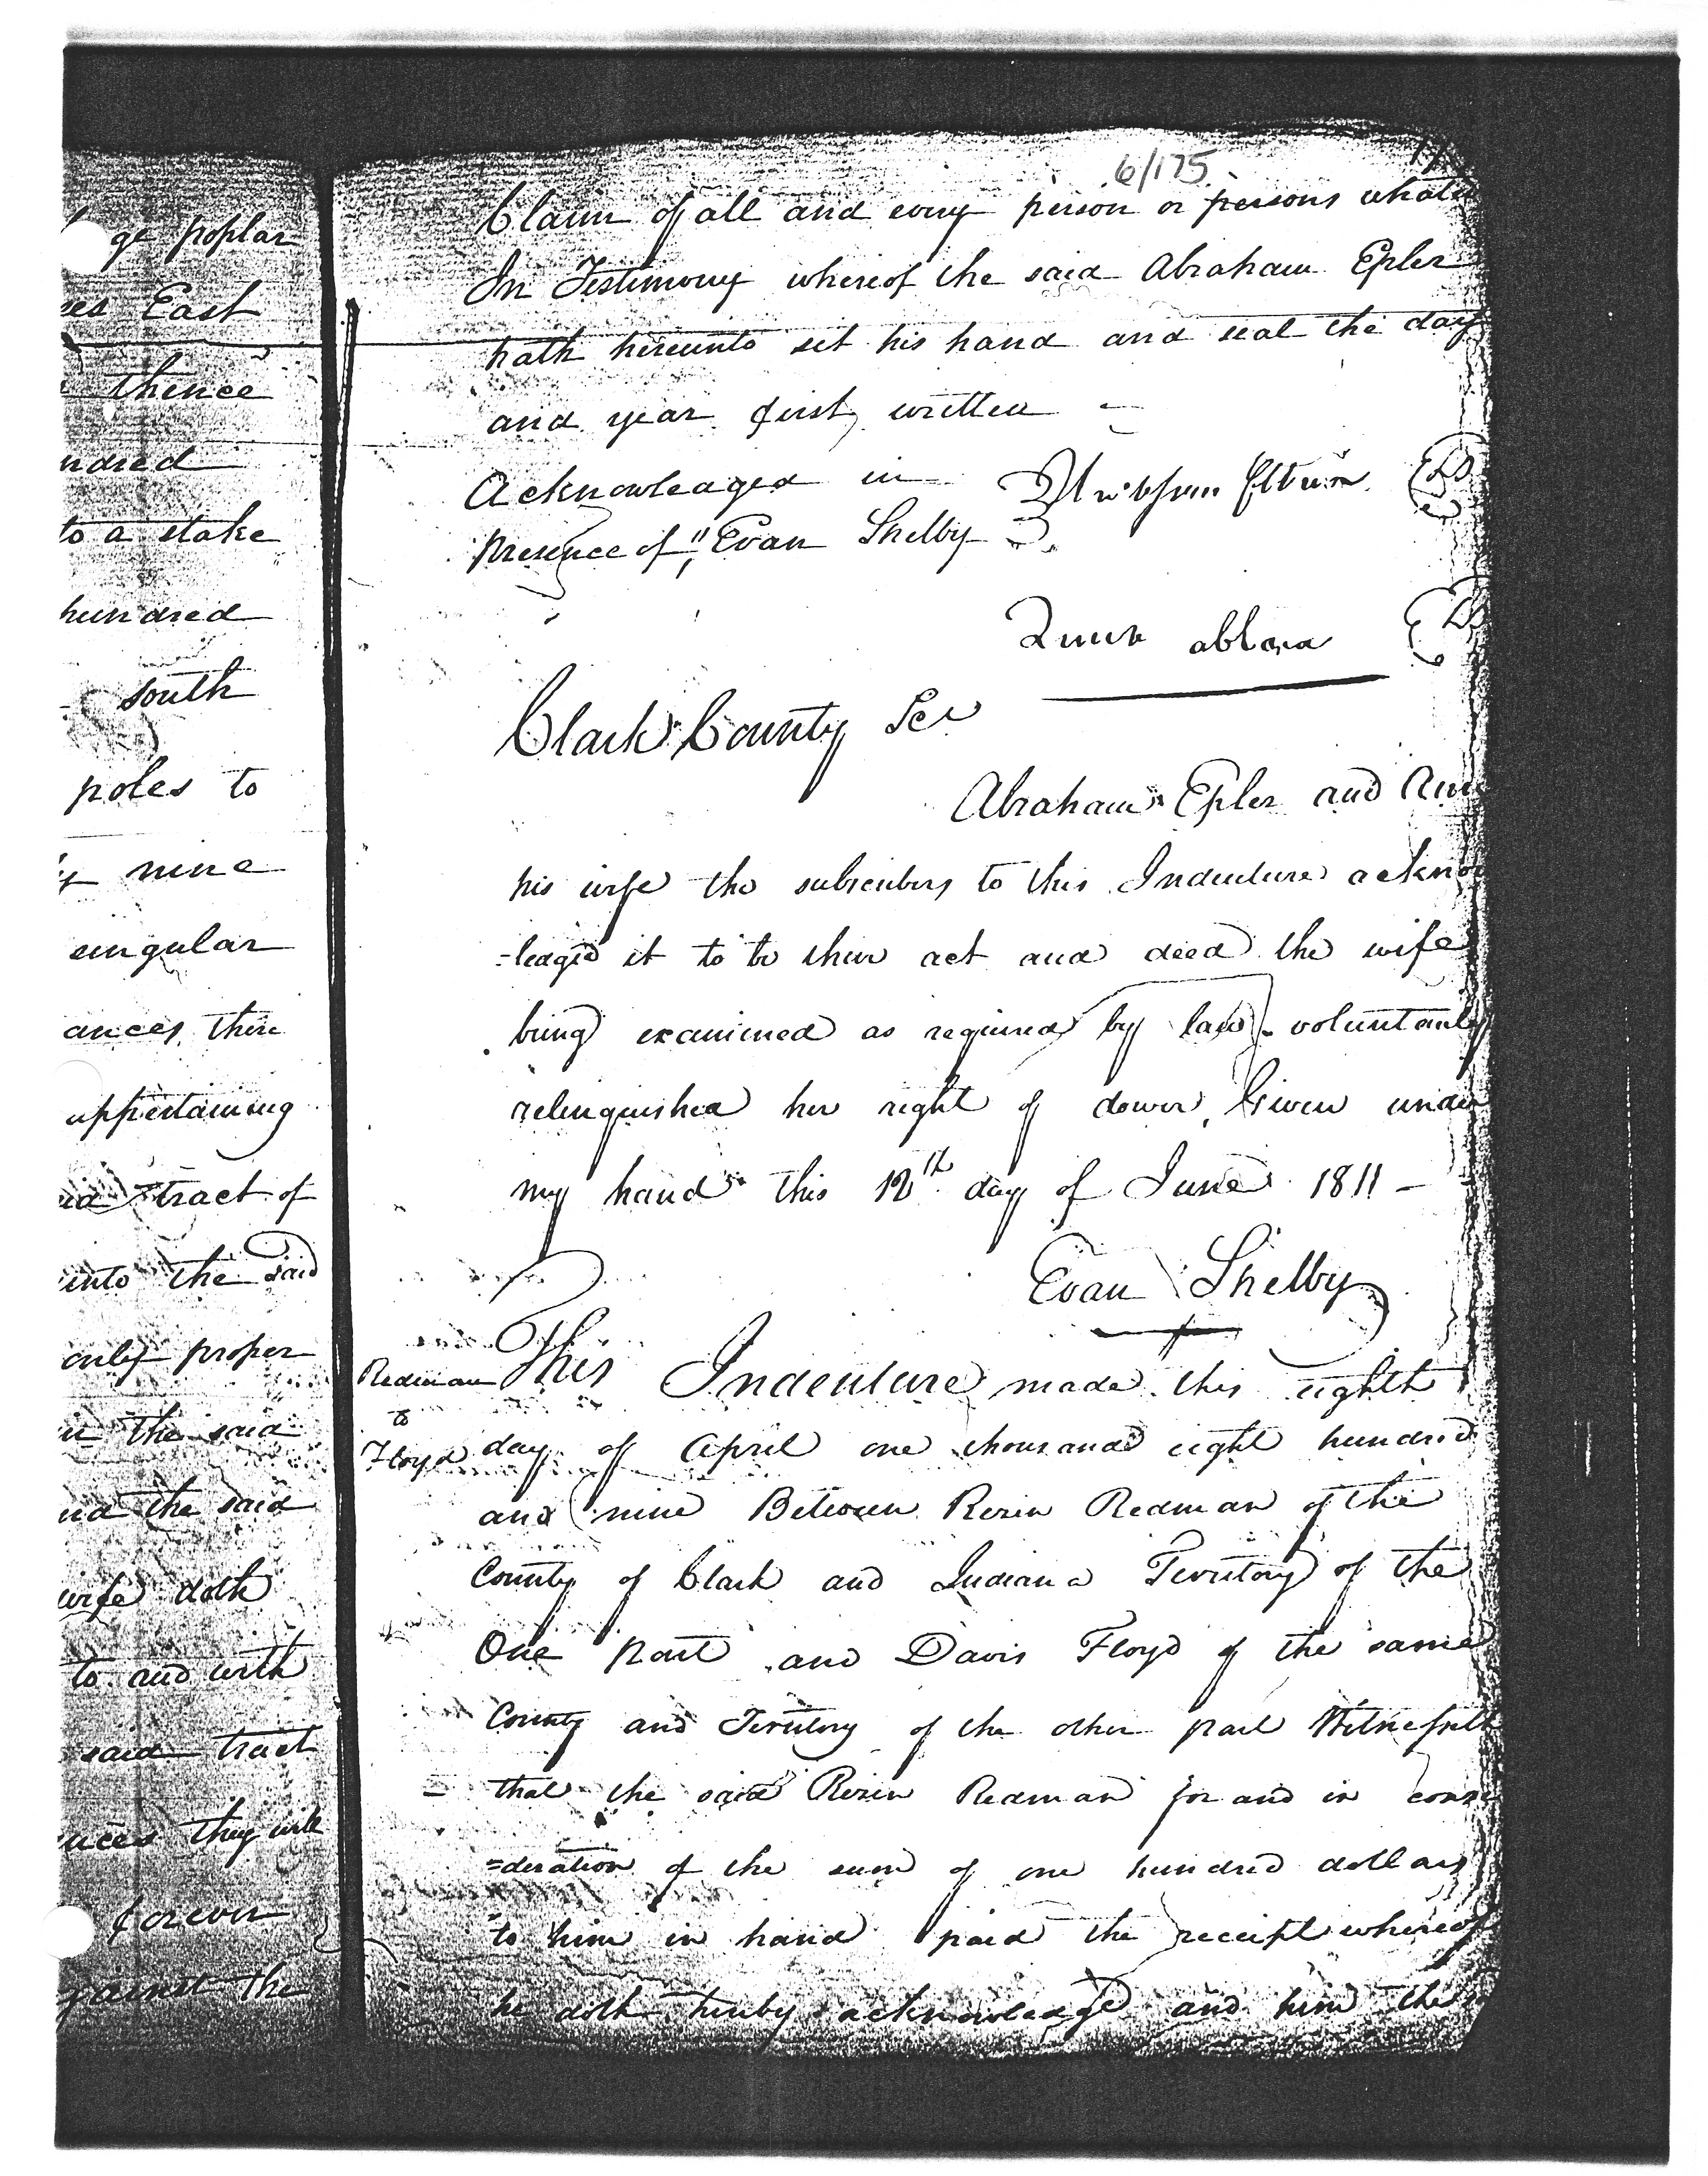 ge poplar
East
thence
ndred
to a stake
hundred
south
poles to
nine
singular
ances there
appertaining
tract of
into the said
only proper
in the said
and the said
wife doth
to and with
said tract
they will
forever
gainst the
6/175
Claim of all and every person or persons whats
In Testimony whereof the said Abraham Epler
hath hereunto set his hand and seal the day
and year first written
Acknowledged in
presence of Evan Shelby
Clark County Sct
Abraham Epler and
his wife the subscribers to this Indenture acknow
=ledged it to be their act and deed the wife
being examined as required by law voluntarily
relinquished her right of dower, Given under
my hand this 12th day of June 1811 -
Evan Shelby
Redman
to
Floyd
This Indenture made this eighth
day of April one thousand eight hundred
and nine Between Rezin Redman of the
County of Clark and Indiana Territory of the
One part and Davis Floyd of the same
County and Territory of the other part Witnesseth
that the said Rezin Redman for and in consi
=deration of the sum of one hundred dollars
to him in hand paid the receipt whereof
he doth hereby acknowledge and him the